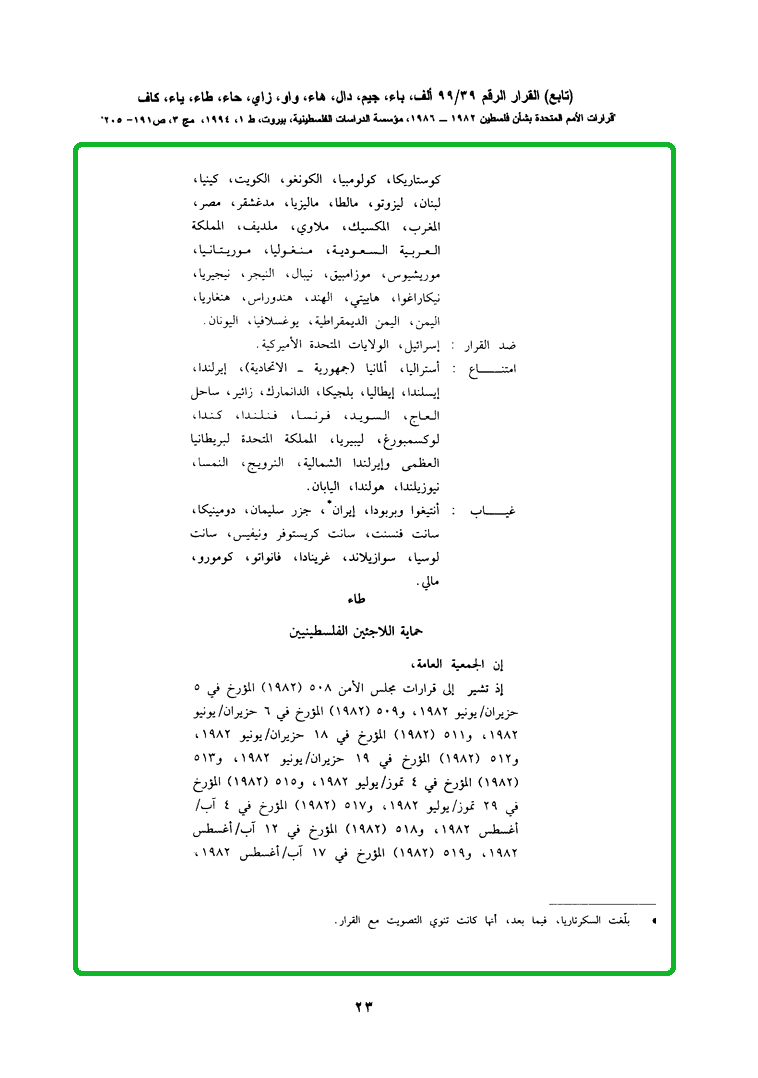 (تابع) القرار الرقم ٩٩/٣٩ ألف، باء، جيم، دال، هاء، واو، زاي، حاء، طاء، ياء، كاف
"قرارات الأمم المتحدة بشأن فلسطين ١٩٨٢ — ١٩٨٦، مؤسسة الدراسات الفلسطينية، بيروت، ط ١، ١٩٩٤، مج ٣، ص١٩١- ٢٠٥"
كوستاريكا، كولومبيا، الكونغو، الكويت، كينيا،
لبنان، ليزوتو، مالطا، ماليزيا، مدغشقر، مصر،
المغرب، المكسيك، ملاوي، ملديف، المملكة
العربية السعودية، منغوليا، موريتانيا،
موريشيوس، موزامبيق، نيبال، النيجر، نيجيريا،
نيكاراغوا، هاييتي، الهند، هندوراس، هنغاريا،
اليمن، اليمن الديمقراطية، يوغسلافيا، اليونان.
ضد القرار : إسرائيل، الولايات المتحدة الأميركية.
امتنـــــاع : أستراليا، ألمانيا (جمهورية ـ الاتحادية)، إيرلندا،
إيسلندا، إيطاليا، بلجيكا، الدانمارك، زائير، ساحل
العاج، السويد، فرنسا، فنلندا، كندا،
لوكسمبورغ، ليبيريا، المملكة المتحدة لبريطانيا
العظمى وإيرلندا الشمالية، النرويج، النمسا،
نيوزيلندا، هولندا، اليابان.
غيـــــاب : أنتيغوا وبربودا، إيران*، جزر سليمان، دومينيكا،
سانت فنسنت، سانت كريستوفر ونيفيس، سانت
لوسيا، سوازيلاند، غرينادا، فانواتو، كومورو،
مالي.
طاء
حماية اللاجئين الفلسطينيين
إن الجمعية العامة،
إذ تشير إلى قرارات مجلس الأمن ٥٠٨ (١٩٨٢) المؤرخ في ٥
حزيران/يونيو ١٩٨٢، و٥٠٩ (١٩٨٢) المؤرخ في ٦ حزيران/يونيو
١٩٨٢، و٥١١ (١٩٨٢) المؤرخ في ١٨ حزيران/يونيو ١٩٨٢،
و٥١٢ (١٩٨٢) المؤرخ في ١٩ حزيران/يونيو ١٩٨٢، و٥١٣
(١٩٨٢) المؤرخ في ٤ تموز/يوليو ١٩٨٢، و٥١٥ (١٩٨٢) المؤرخ
في ٢٩ تموز/يوليو ١٩٨٢، و٥١٧ (١٩٨٢) المؤرخ في ٤ آب/
أغسطس ١٩٨٢، و٥١٨ (١٩٨٢) المؤرخ في ١٢ آب/أغسطس
١٩٨٢، و٥١٩ (١٩٨٢) المؤرخ في ١٧ آب/أغسطس ١٩٨٢،
* بلّغت السكرتاريا، فيما بعد، أنها كانت تنوي التصويت مع القرار.
٢٣